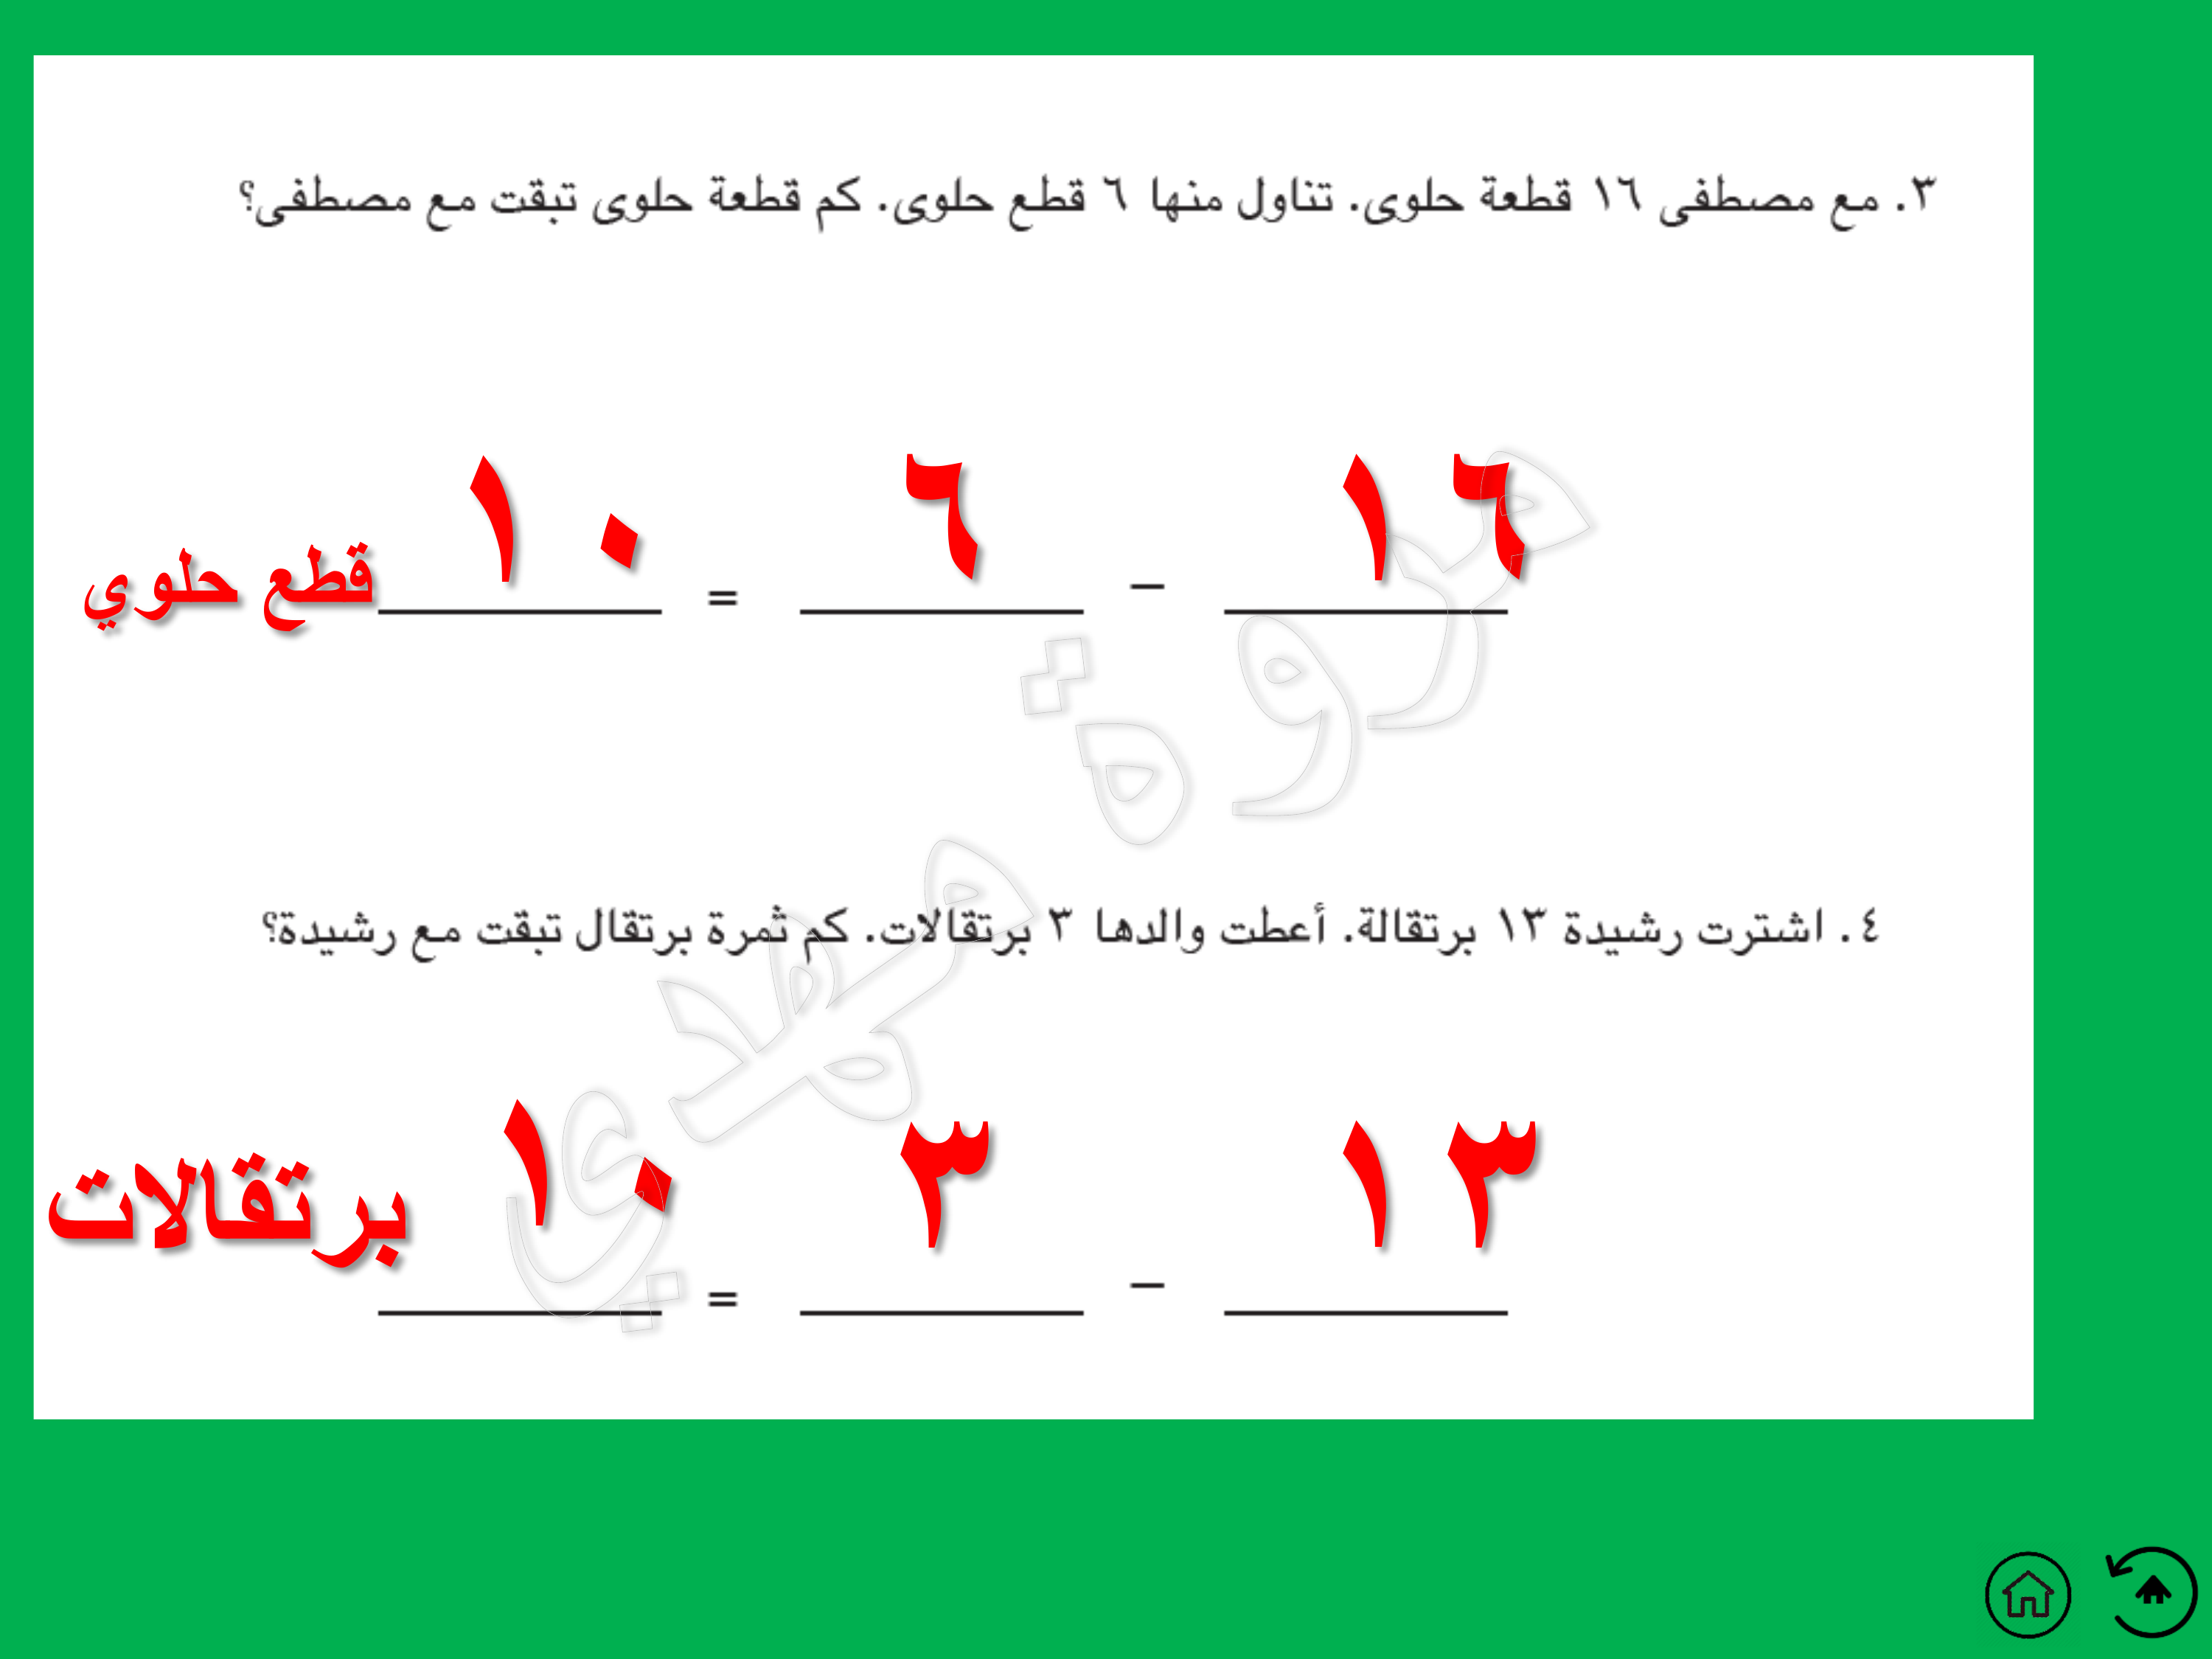 ٣. مع مصطفى ١٦ قطعة حلوى. تناول منها ٦ قطع حلوى. كم قطعة حلوى تبقت مع مصطفى؟
١٦ − ٦ = ١٠ قطع حلوي
مروة مهدي
٤. اشترت رشيدة ١٣ برتقالة. أعطت والدها ٣ برتقالات. كم ثمرة برتقال تبقت مع رشيدة؟
١٣ − ٣ = ١٠ برتقالات